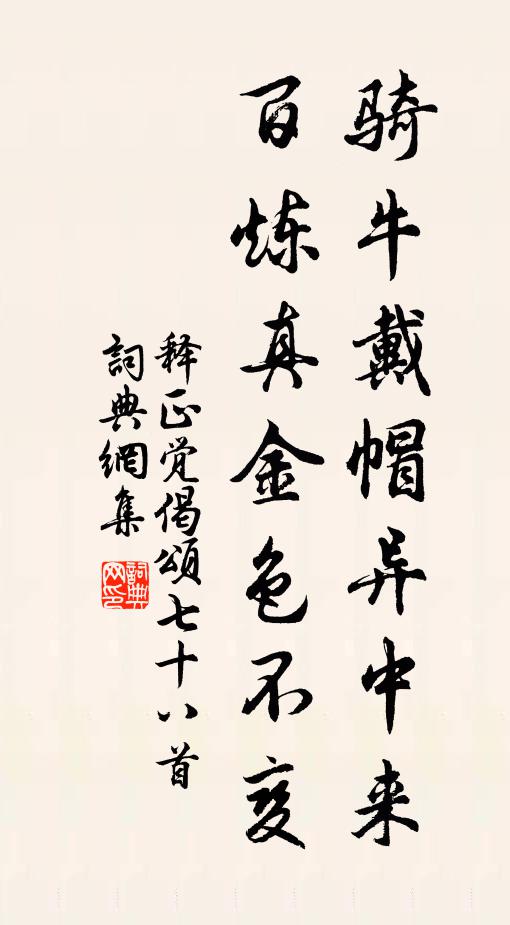 骑牛戴帽异中来
百炼真金色不变
释正觉偈颂七十八首
詞典網集
詞典
网印